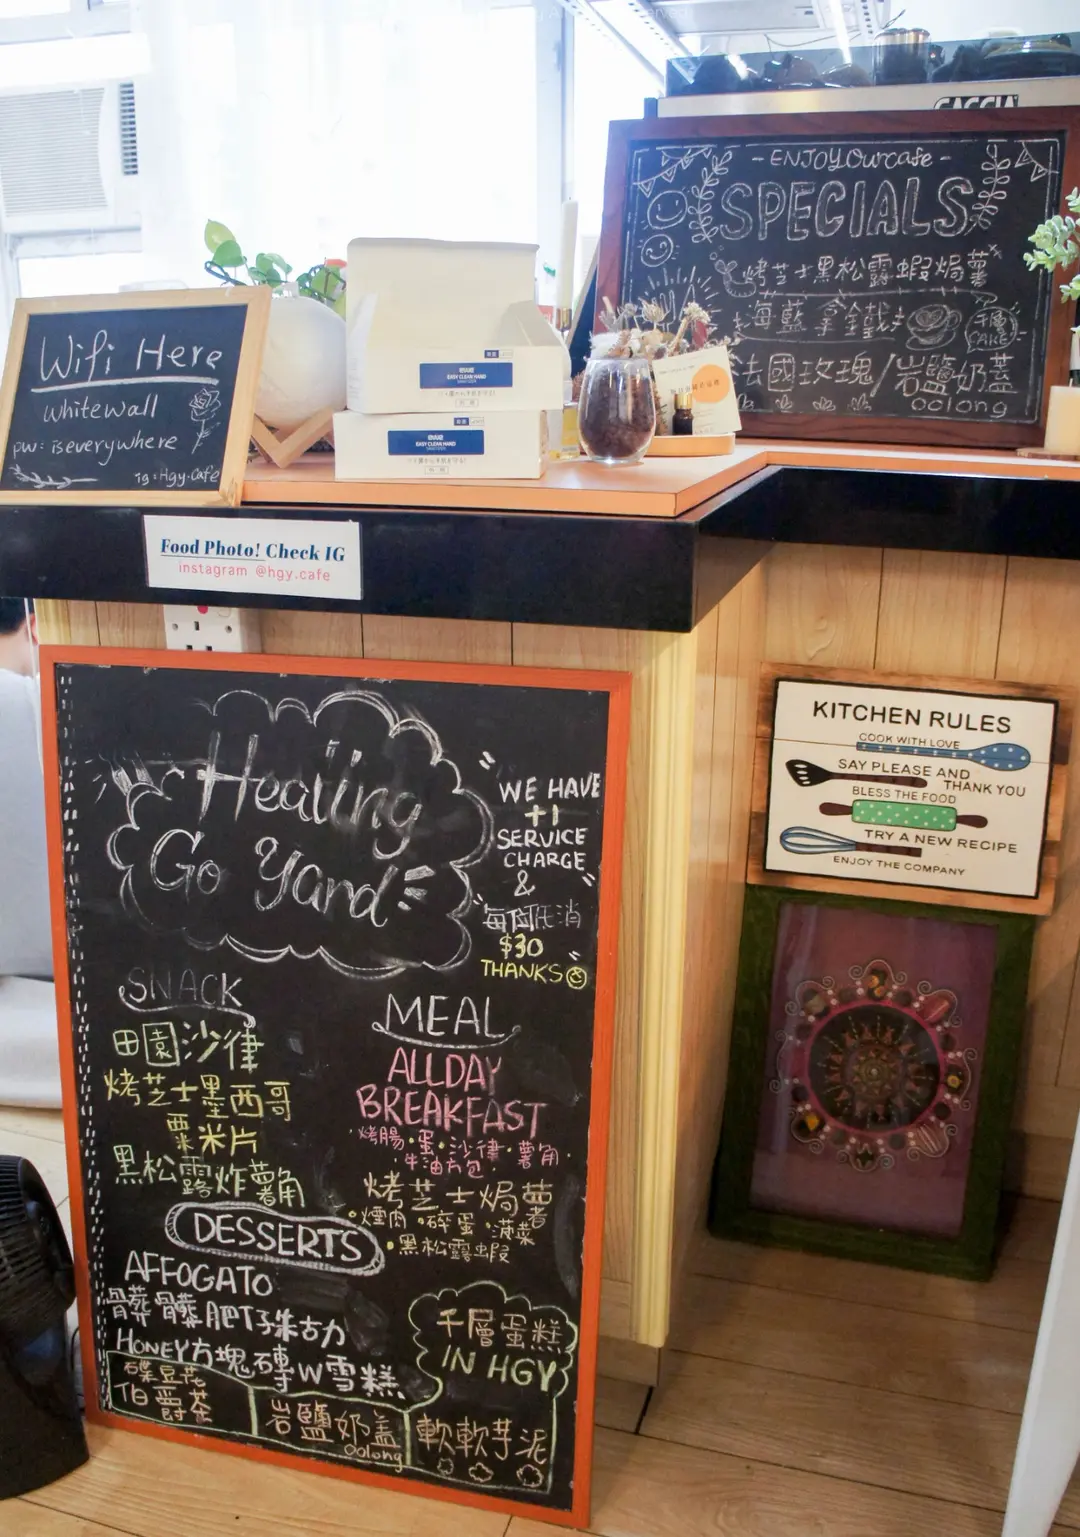 GAGGIA
- ENJOY Our cafe -
SPECIALS
烤芝士黑松露蝦焗薯
海藍拿鐵
千層
CAKE
法國玫瑰/岩鹽奶蓋
oolong
Wifi Here
whitewall
pw: iseverywhere
ig: Hgy.Cafe
EASY CLEAN HAND
EASY CLEAN HAND
Food Photo! Check IG
instagram @hgy.cafe
Healing
Go Yard
WE HAVE
+1
SERVICE
CHARGE
&
每位低消
$30
THANKS
SNACK
田園沙律
烤芝士墨西哥
粟米片
黑松露炸薯角
MEAL
ALLDAY
BREAKFAST
烤腸·蛋·沙律·薯角·
牛油方包
烤芝士焗薯
·煙肉·碎蛋·菠菜
·黑松露蝦
DESSERTS
AFFOGATO
髒髒肥仔朱古力
HONEY方塊磚W雪糕
千層蛋糕
IN HGY
碟豆花
伯爵茶
岩鹽奶蓋
oolong
軟軟芋泥
KITCHEN RULES
COOK WITH LOVE
SAY PLEASE AND
THANK YOU
BLESS THE FOOD
TRY A NEW RECIPE
ENJOY THE COMPANY